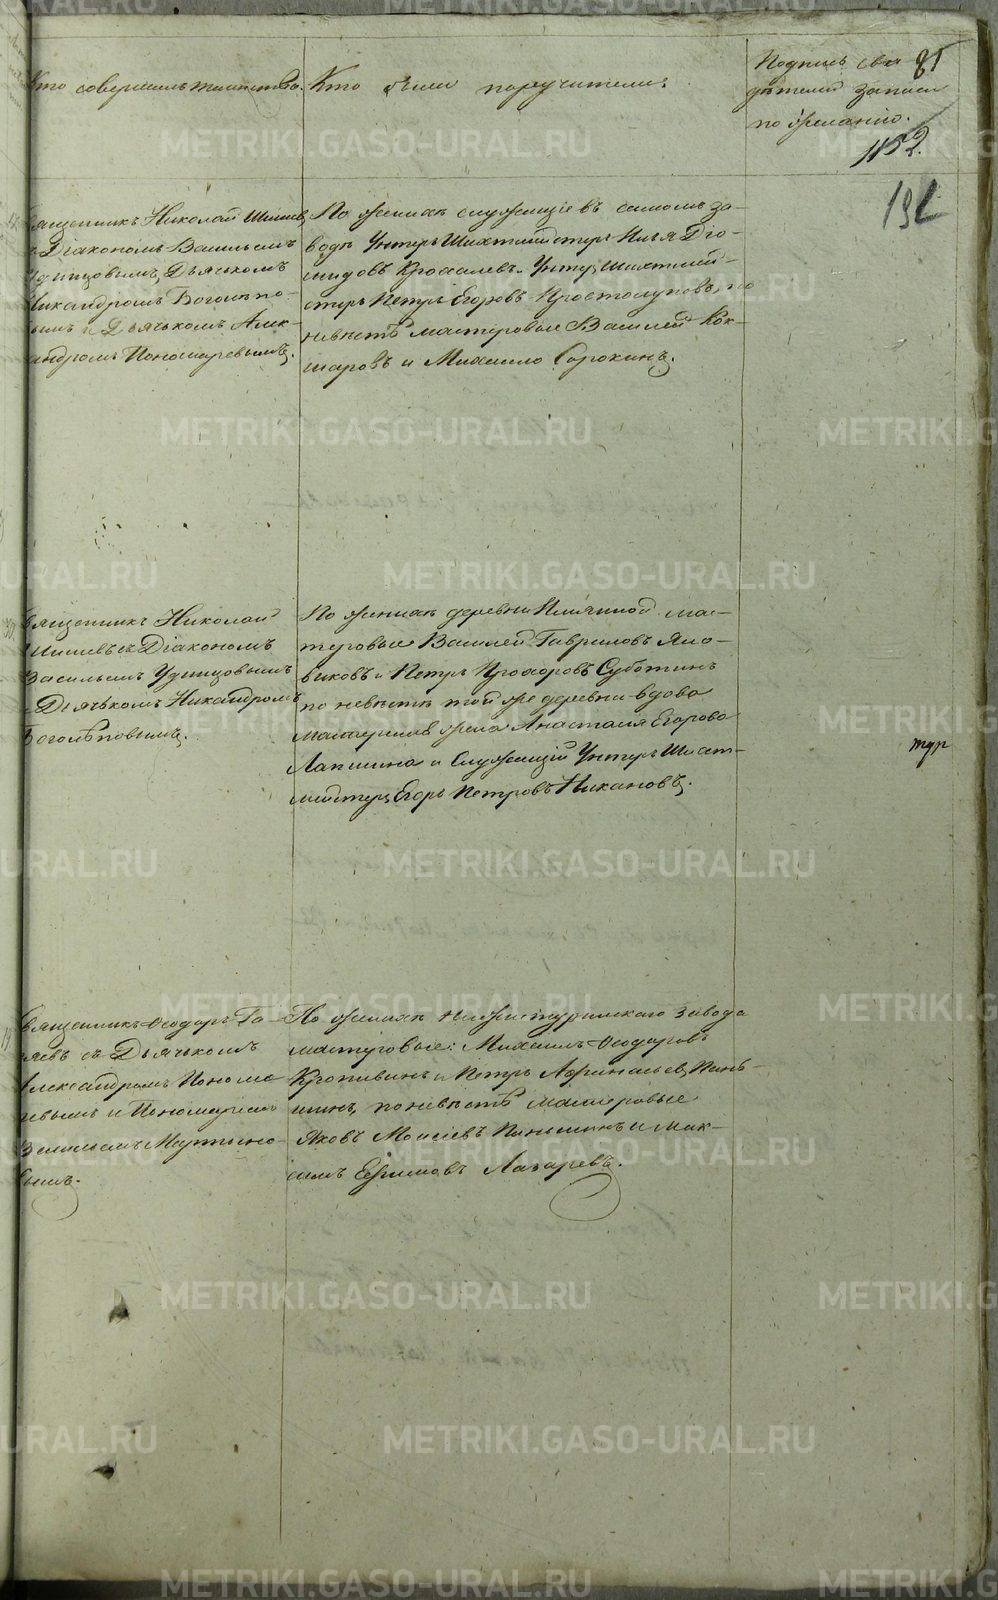 Кто совершалъ таинство.
Кто были поручители.
Подпись сви
дѣтелей записи
по желанію.
81
1152.
191
Священникъ Николай Шишев
Діакономъ Васильемъ
Удинцовымъ, Дьячькомъ
Никандромъ Боголѣпо-
вымъ и Дьячькомъ Алек-
андромъ Пономаревымъ.
По женихѣ служащіе въ самомъ за-
водѣ Унтеръ Шихтмейстеръ Илья Діо-
нидовъ Крохалевъ, Унтеръ Шихтмей-
стеръ Петръ Егоровъ Простолуповъ, по
невѣстѣ мастеровые Василей Кок-
шаровъ и Михайло Сорокинъ.
Священникъ Николай
Шишевъ съ Діакономъ
Васильемъ Удинцовымъ
Дьячькомъ Никандромъ
Боголѣповымъ.
По женихѣ деревни мас-
теровые Василей Гавриловъ
и Петръ Прохоровъ Суботинъ
по невѣстѣ той же деревни вдова
мастерская жена Анастасія Егорова
Лапшина и Служащій Унтеръ Шихт-
мейстеръ Егоръ Петровъ Никановъ.
Священникъ Ѳеодоръ
съ Дьячькомъ
Александромъ Понома
ревымъ и Пономаремъ
Васильемъ Мартыно-
вымъ.
По женихѣ Нижнетуринскаго завода
мастеровые: Михаилъ Ѳеодоровъ
Кропивинъ и Петръ Афанасьевъ Пань-
шинъ, по невѣстѣ мастеровые
Яковъ Моисѣевъ Паньшинъ и Мак-
симъ Ефимовъ Лазаревъ.
METRIKI.GASO-URAL.RU